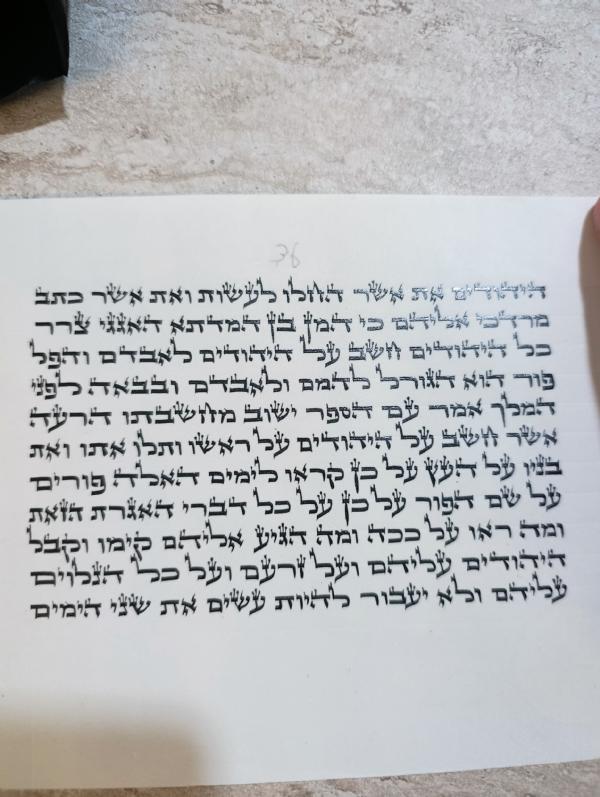 היהודים את אשר החלו לעשות ואת אשר כתב
מרדכי אליהם כי המן בן המדתא האגגי צרר
כל היהודים חשב על היהודים לאבדם והפל
פור הוא הגורל להמם ולאבדם ובבאה לפני
המלך אמר עם הספר ישוב מחשבתו הרעה
אשר חשב על היהודים על ראשו ותלו אתו ואת
בניו על העץ על כן קראו לימים האלה פורים
על שם הפור על כן על כל דברי האגרת הזאת
ומה ראו על ככה ומה הגיע אליהם קימו וקבל
היהודים עליהם ועל זרעם ועל כל הנלוים
עליהם ולא יעבור להיות עשים את שני הימים